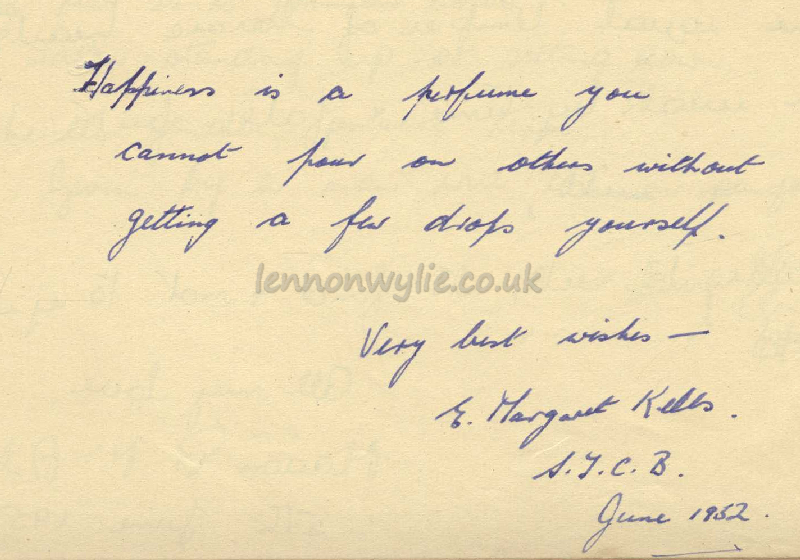 Happiness is a perfume you
cannot pour on others without
getting a few drops yourself.
lennonwylie.co.uk
Very best wishes —
E. Margaret Kells.
S.T.C.B.
June 1952.